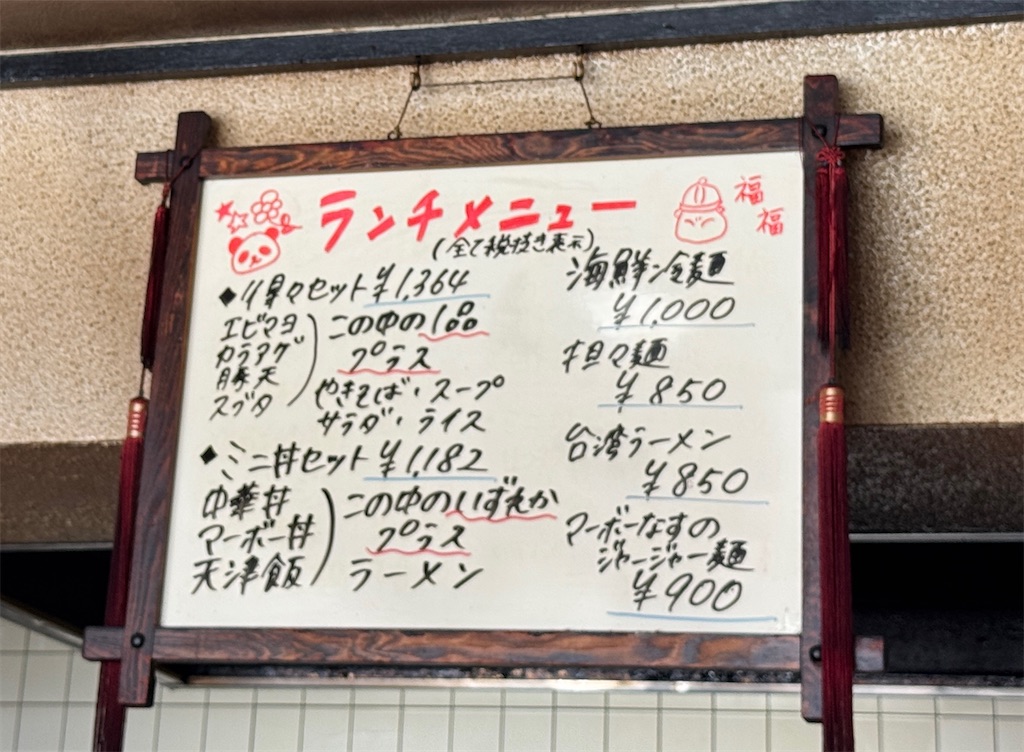 ランチメニュー
(全て税抜き表示)
福
福
セット ¥1,364
エビマヨ
カラアゲ
豚天
スブタ
この中の1品
プラス
やきそば・スープ
サラダ・ライス
◆ミニ丼セット ¥1,182
中華丼
マーボー丼
天津飯
この中のいずれか
プラス
ラーメン
海鮮冷麺
¥1,000
担々麺
¥850
台湾ラーメン
¥850
マーボーなすの
ジャージャー麺
¥900